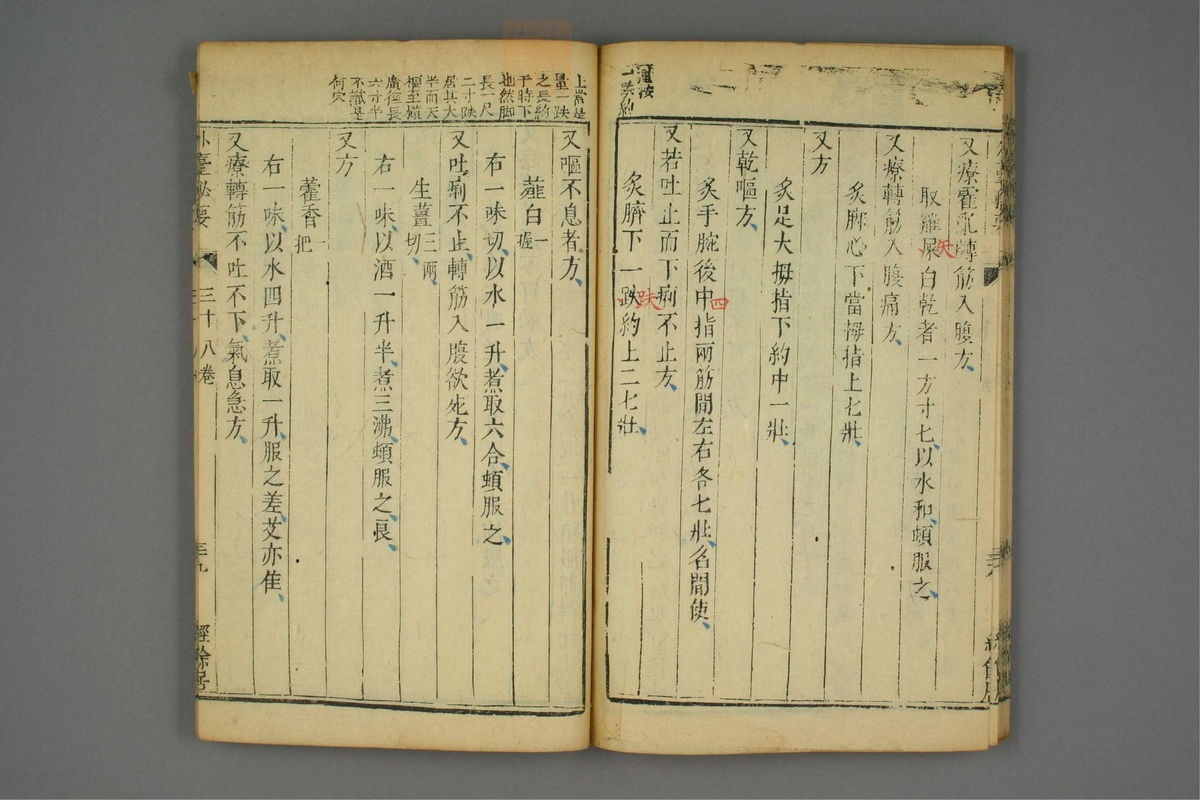 又療霍亂轉筋入腹方
取雞屎白乾者一方寸匕以水和頓服之
矢
又療轉筋入腹痛方
灸脚心下當拇指上七壯
又方
灸足大拇指下約中一壯
又乾嘔方
灸手腕後中指兩筋間左右各七壯名間使
四
又若吐止而下痢不止方
灸臍下一趺約上二七壯
趺
又嘔不息者方
薤白一握
右一味切以水一升煮取六合頓服之
又吐痢不止轉筋入腹欲死方
生薑三兩切
右一味以酒一升半煮三沸頓服之良
又方
藿香一把
右一味以水四升煮取一升服之差艾亦佳
又療轉筋不吐不下氣息急方
上當是
量一趺
之長約
于時下
也然脚
長一尺
二寸趺
居其大
半而天
樞至
廣徑長
六寸半
不識是
何穴
外臺秘要
三十八卷
經餘居